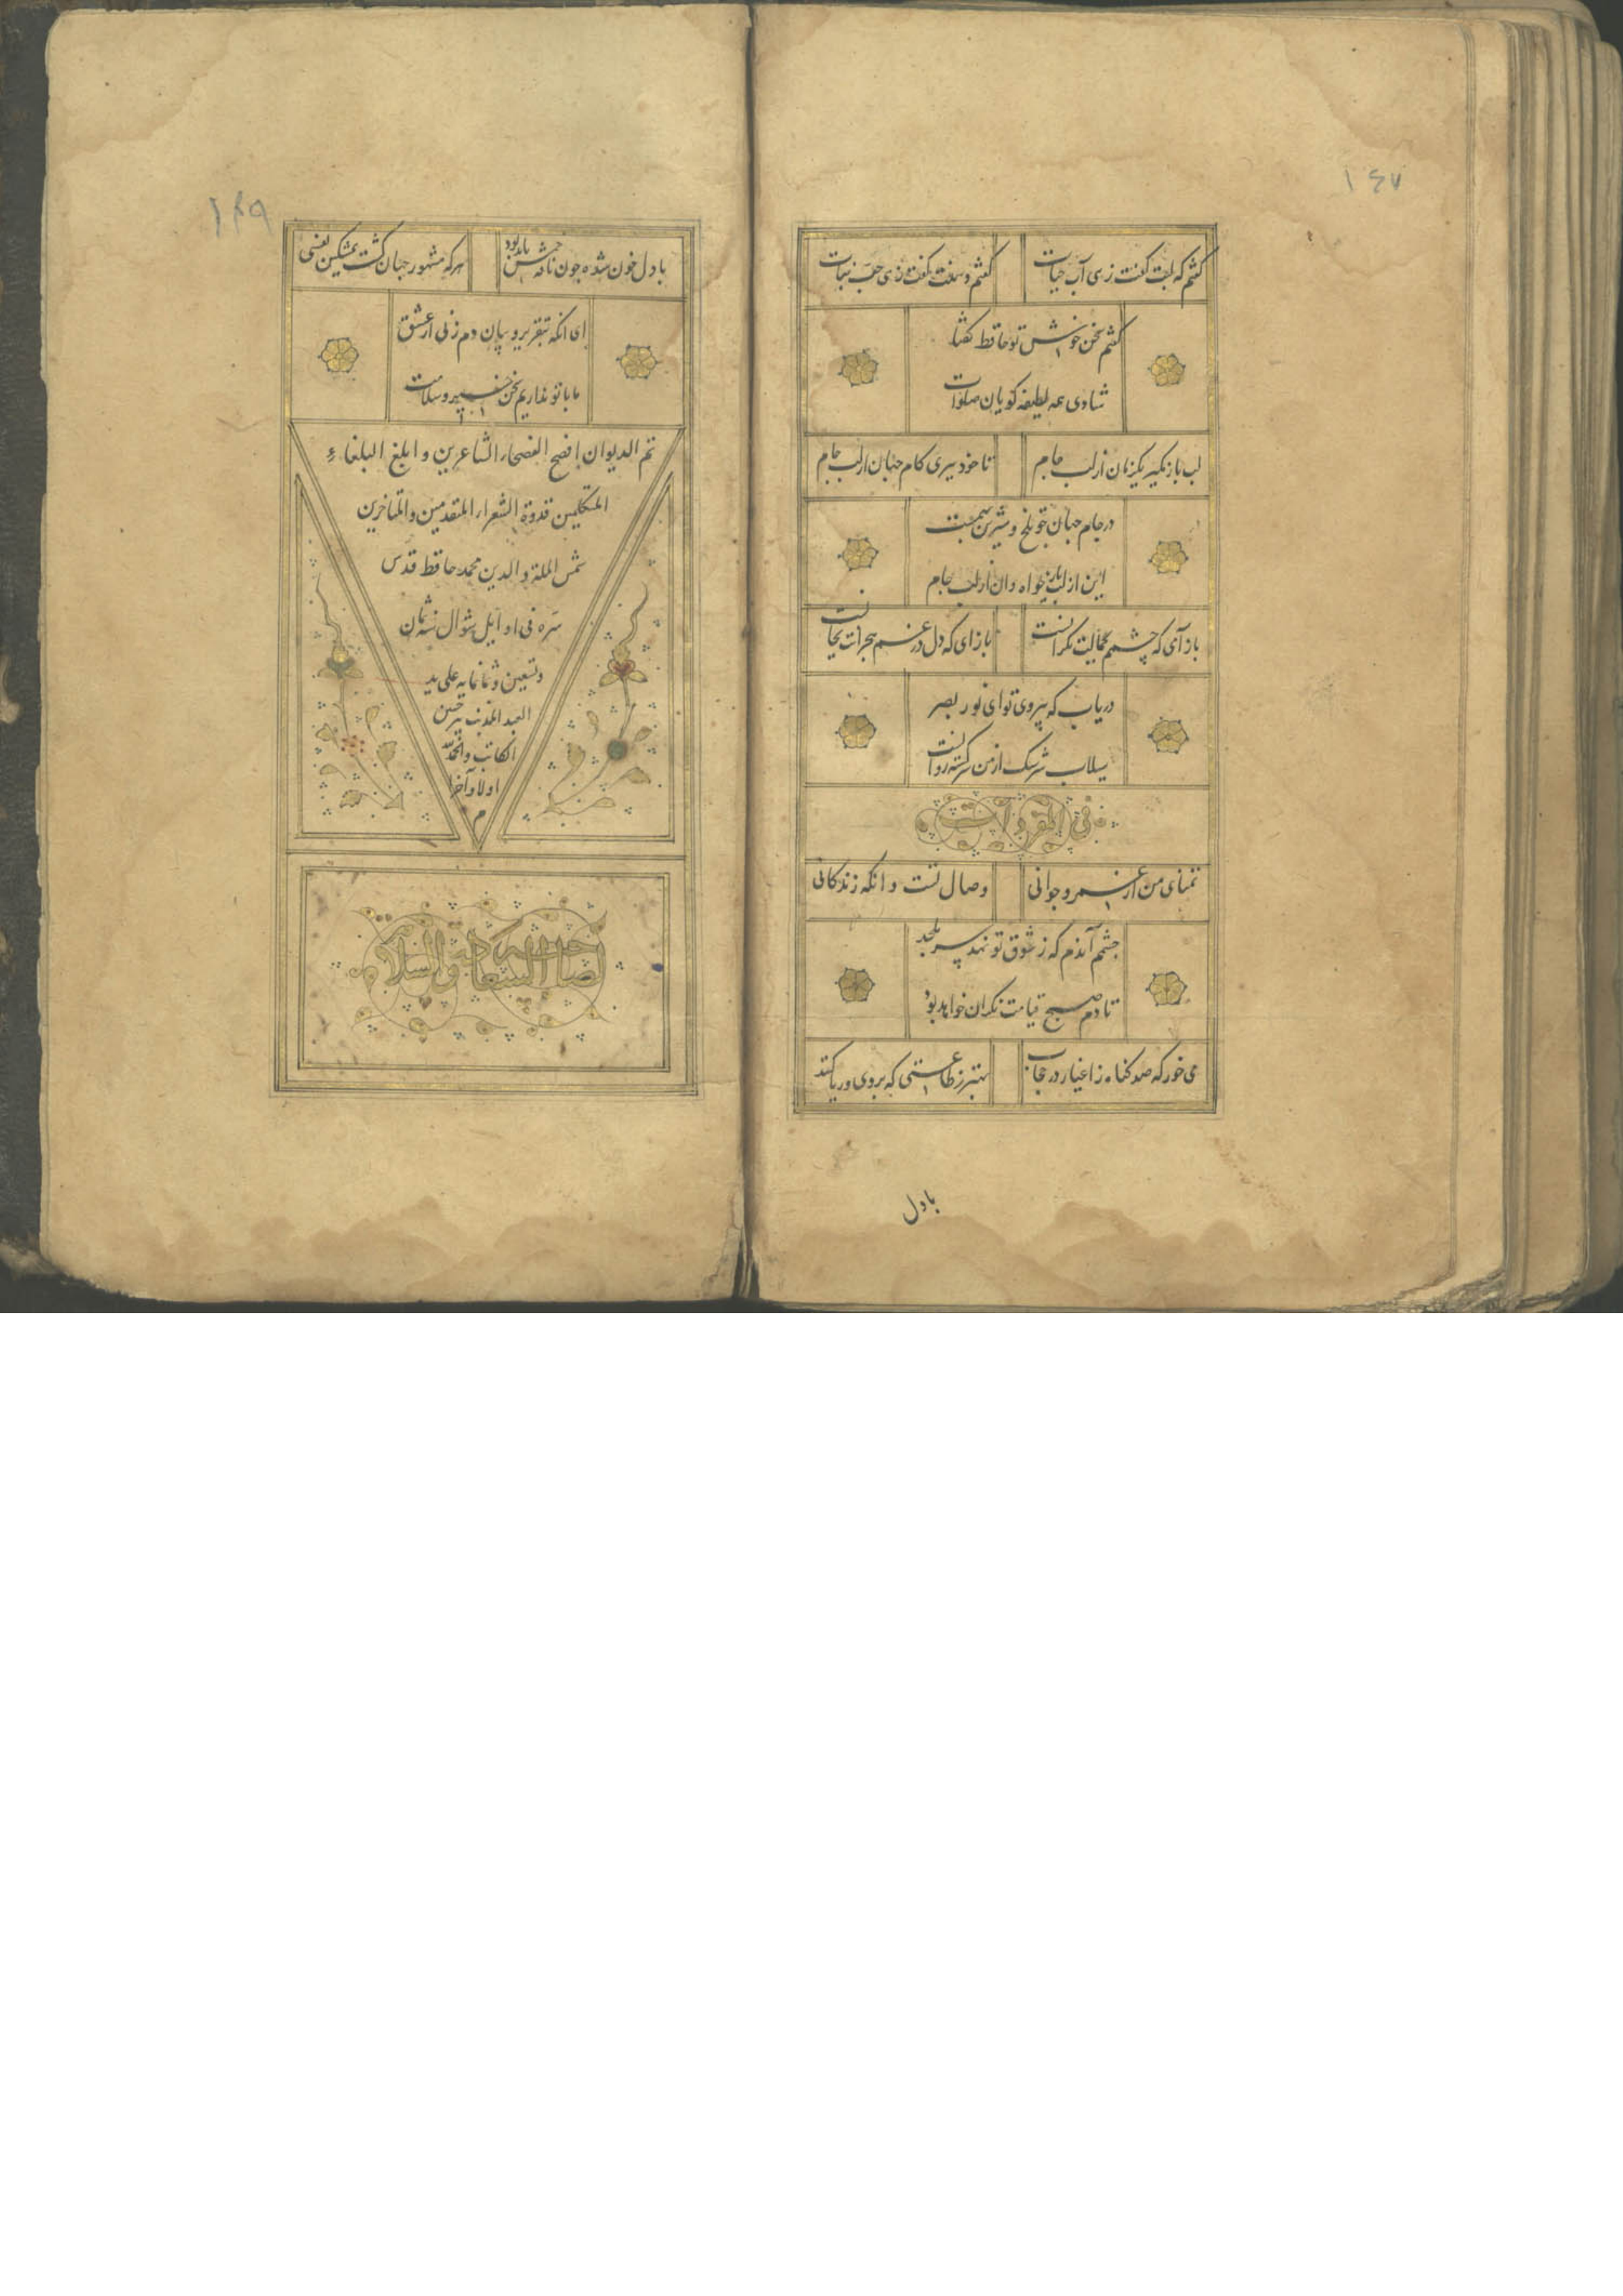 ۱۴۷
گفتم که لبت گفت زهی آب حیات
گفتم دهنت گفت زهی حب نبات
گفتم سخن خوش تو حافظ گفتا
شادی همه لطیفه گویان صلوات
لب باز نگیر یکزمان از لب جام
تا خود ببری کام جهان از لب جام
در جام جهان چو تلخ و شیرین بهمست
این از لب یار خواه وان از لب جام
باز آی که چشم بجمالت نگرانست
باز ای که دل در غم هجرانت بجانست
دریاب که بی روی تو ای نور بصر
سیلاب سرشک از من سرگشته روانست
فی المفردات
تمنای من از عمر و جوانی
وصال تست و انکه زندکانی
چشم آندم که ز شوق تو نهد سر بلحد
تا دم صبح قیامت نکران خواهد بود
می خور که صد کناه ز اغیار در حجاب
بهتر ز طاعتی که بروی و ریا کنند
بادل
۱۴۹
هر که مشهور جهان گشت بمشکین نفسی
با دل خون شده چون نافه خوشش باید بود
ای انکه بتقریر و بیان دم زنی از عشق
ما با تو نداریم سخن خیر و سلامت
تم الدیوان افصح الفصحاء الشاعرین و ابلغ البلغاء
المتکلمین قدوة الشعراء المتقدمین والمتاخرین
شمس الملة والدین محمد حافظ قدس
سره فی اوایل شوال سنه ثمان
وتسعین وثمانمایه علی ید
العبد المذنب پیر حسین
الکاتب والحمد لله
اولا وآخرا
م